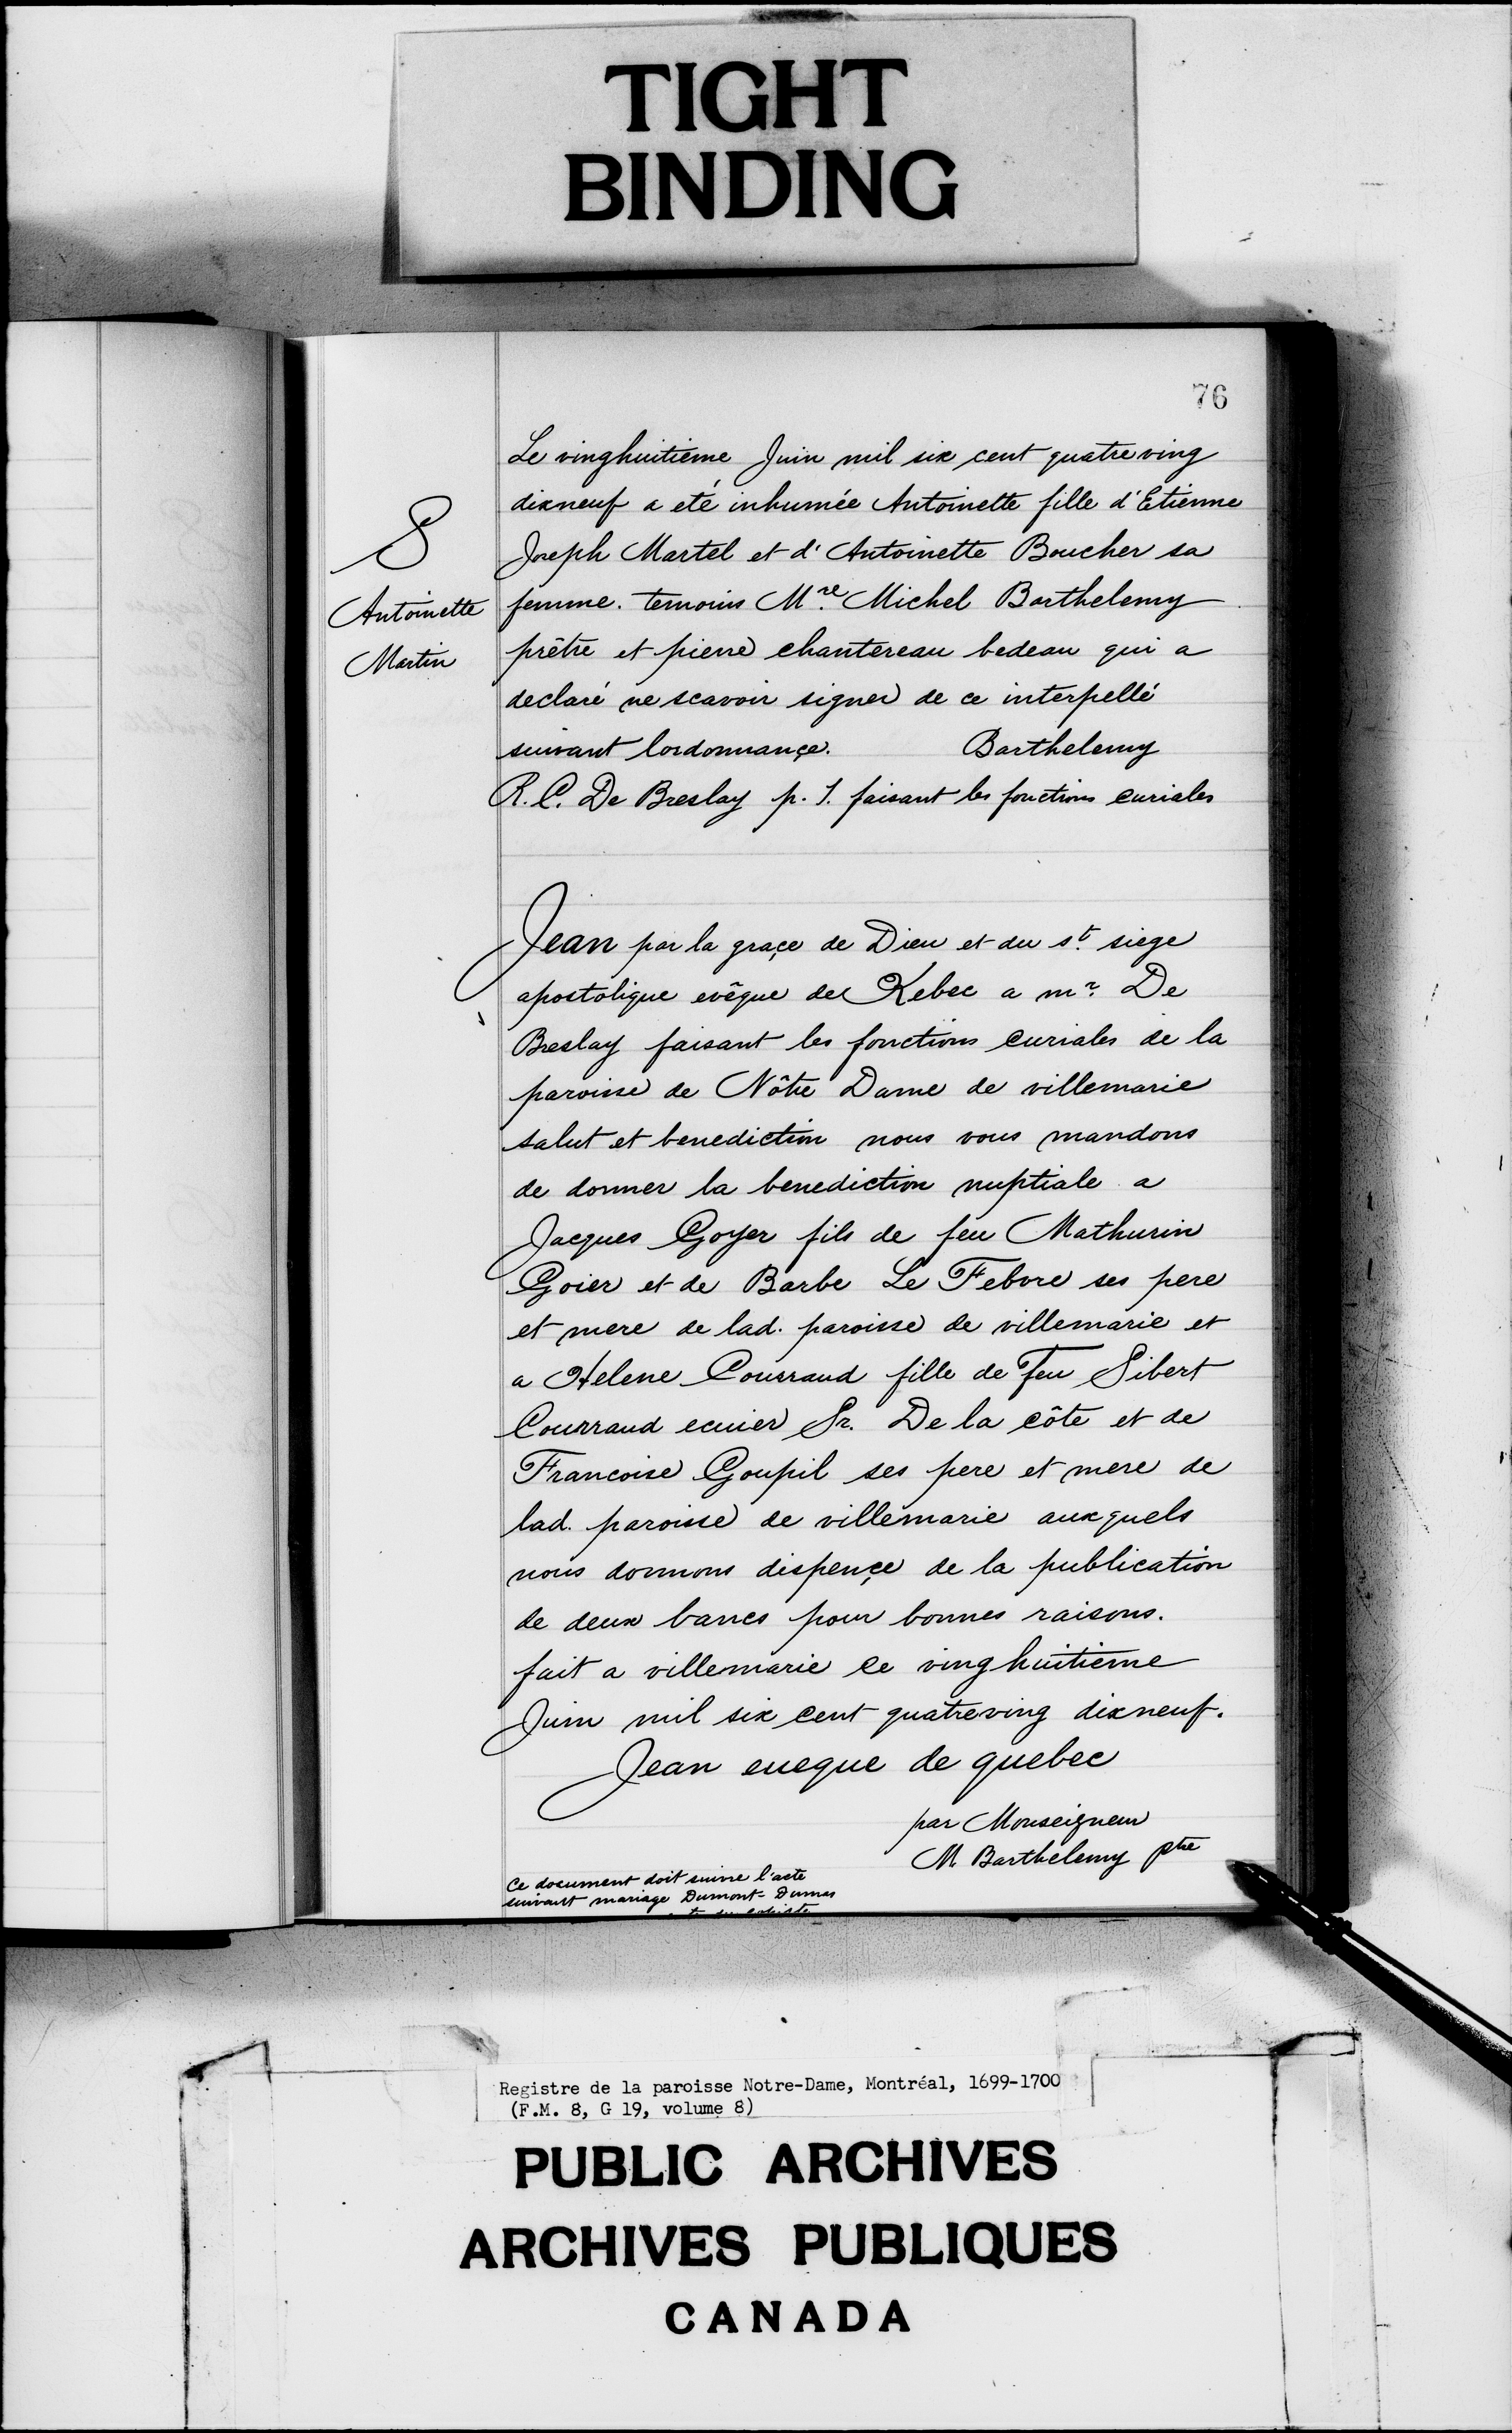 TIGHT
BINDING
76
Le vinghuitieme Juin mil six cent quatreving
dixneuf a eté inhumée Antoinette fille d'Etienne
Joseph Martel et d'Antoinette Boucher sa
femme. temoins Mre. Michel Barthelemy
prêtre et pierre chantereau bedeau qui a
declaré ne scavoir signer de ce interpellé
suivant lordonnançe. Barthelemy
R. C. De Breslay p. 1. faisant les fonctions curiales
S
Antoinette
Martin
Jean par la graçe de Dieu et du st. siege
apostolique evêque de Kebec a mr. De
Breslay faisant les fonctions curiales de la
paroisse de Nôtre Dame de villemarie
salut et benediction nous vous mandons
de donner la benediction nuptiale a
Jacques Goyer fils de feu Mathurin
Goier et de Barbe Le Febvre ses pere
et mere de lad. paroisse de villemarie et
a Helene Courraud fille de Feu Gibert
Courraud ecuier Sr. De la côte et de
Francoise Goupil ses pere et mere de
lad. paroisse de villemarie auxquels
nous donnons dispençe de la publication
de deux bancs pour bonnes raisons.
fait a villemarie ce vinghuitieme
Juin mil six cent quatreving dixneuf.
Jean eueque de quebec
par Monseigneur
M Barthelemy ptre
Ce document doit suivre l'acte
suivant mariage Dumont-Dumas
Registre de la paroisse Notre-Dame, Montréal, 1699-1700
(F.M. 8, G 19, volume 8)
PUBLIC ARCHIVES
ARCHIVES PUBLIQUES
CANADA